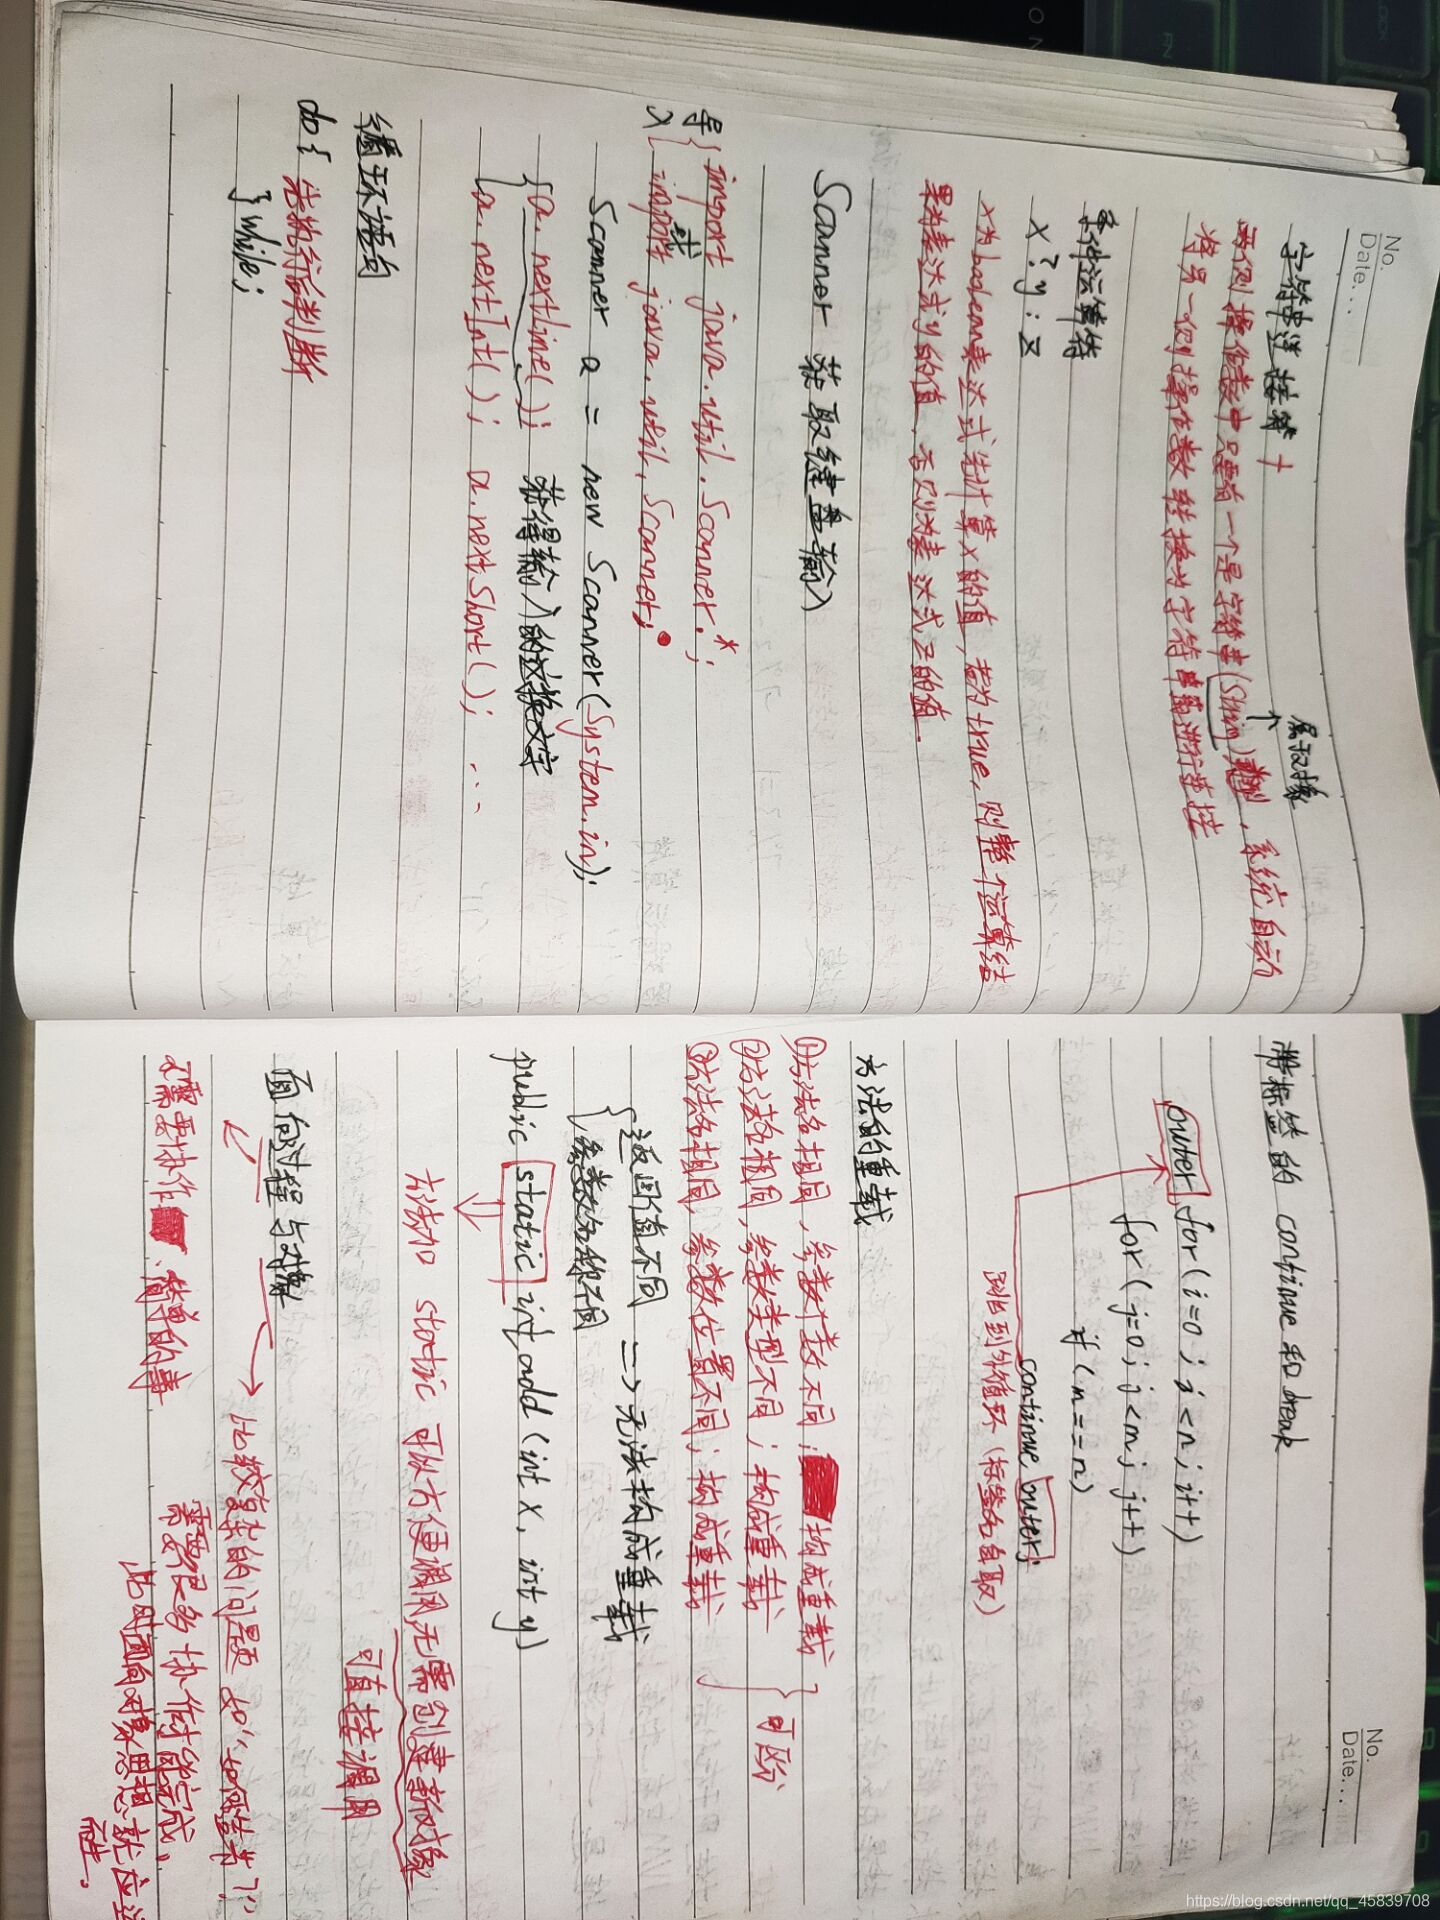 No.
Date...
字符串连接符 +
属引用对象
两侧操作数中只要有一个是字符串(String)类型,系统自动
将另一侧操作数转换为字符串再进行连接
条件运算符
x ? y : z
x为boolean表达式先计算x的值,若为true,则整个运算结
果为表达式y的值,否则为表达式z的值.
Scanner 获取键盘输入
导入
import java.util.Scanner.*;
或
import java.util.Scanner;
Scanner a = new Scanner(System.in);
a.nextLine(); 获得输入的文字
a.nextInt(); a.nextShort(); ...
循环语句
do { 先执行后判断
} while;
No.
Date...
带标签的 continue 和 break
outer for(i=0; i<n; i++)
for(j=0; j<m; j++)
if(m==n)
continue outer;
跳到外循环(标签名自取)
方法的重载
①方法名相同,参数个数不同;构成重载
②方法名相同,参数类型不同;构成重载
③方法名相同,参数位置不同;构成重载
可区分
返回值不同
参数名称不同
=> 无法构成重载
public static int add(int x, int y)
方法加 static 可以方便调用,无需创建新对象
可直接调用
面向过程与对象
比较复杂的问题 如"如何造车?"
不需要协作、简单的事
需要很多协作才能完成。
此时面向对象思想就应运
而生。
https://blog.csdn.net/qq_45839708